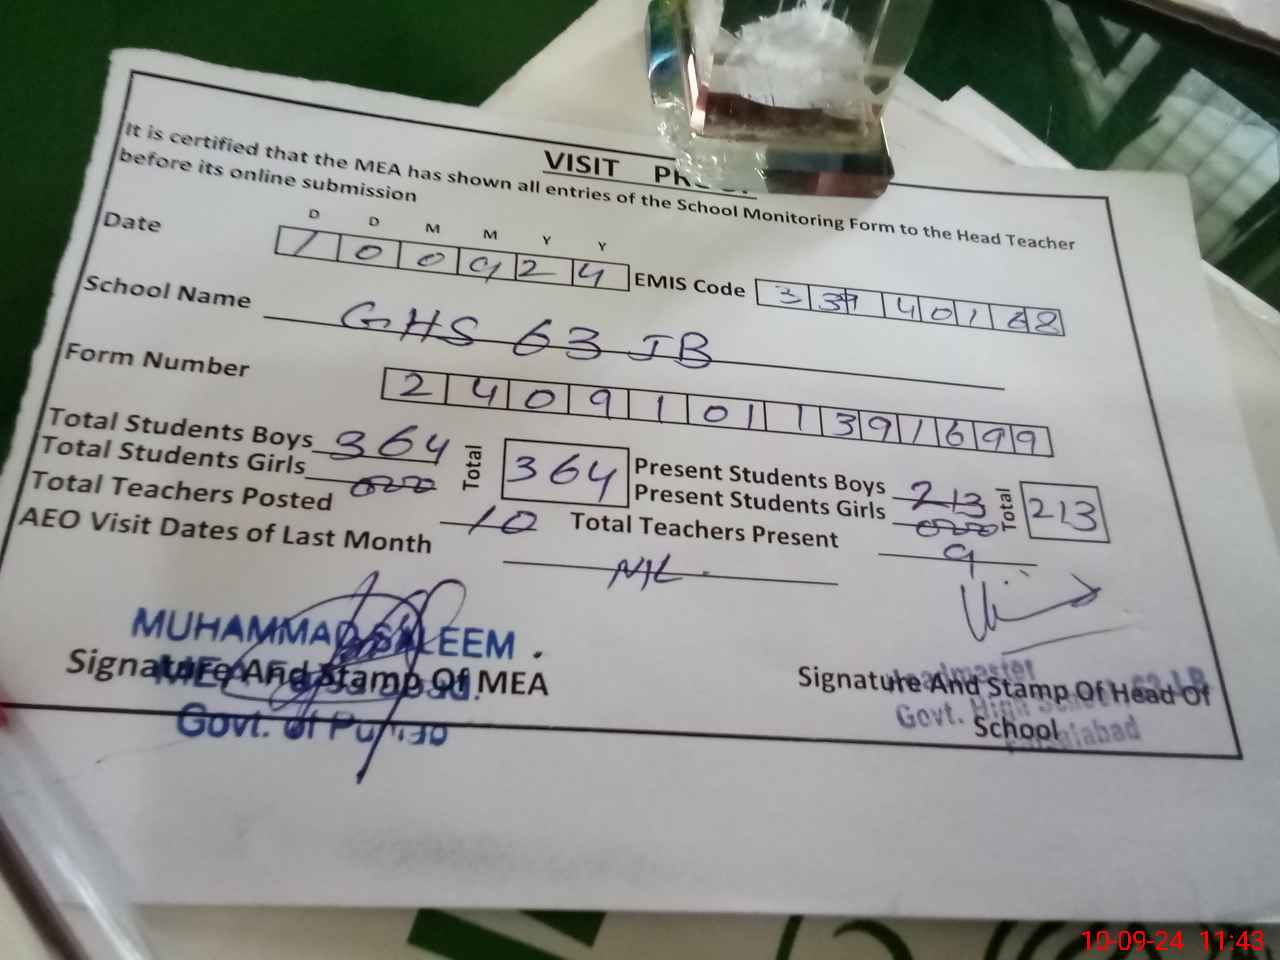 VISIT
It is certified that the MEA has shown all entries of the School Monitoring Form to the Head Teacher
before its online submission
D D M M Y Y
Date 1 0 0 9 2 4 EMIS Code
School Name GHS 63 JB
Form Number 2 4 0 9 1 0 1 1 3 9 1 6 9 9
Total Students Boys 364 Total 364 Present Students Boys 213 Total 213
Total Students Girls 000 Present Students Girls 000
Total Teachers Posted 10 Total Teachers Present 9
AEO Visit Dates of Last Month NIL
MUHAMMAD SALEEM
Signature And Stamp Of MEA
Govt. of Punjab
Headmaster
Signature And Stamp Of Head Of
Govt. High School 63 J.B
School
Faisalabad
10-09-24 11:43